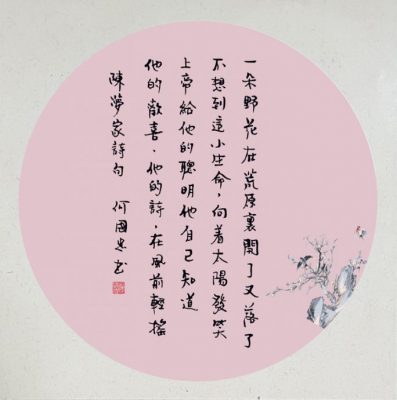 一朵野花在荒原裏開了又落了
不想到這小生命，向着太陽發笑
上帝給他的聰明他自己知道
他的歡喜，他的詩，在風前輕搖
陳夢家詩句　何國忠書